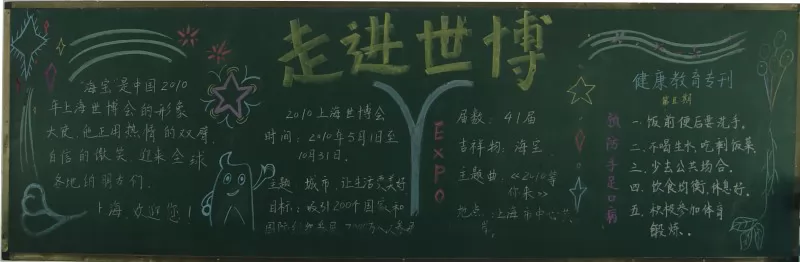 走进世博
"海宝"是中国2010
年上海世博会的形象
大使，他正用热情的双臂
自信的微笑，迎来全球
各地的朋友们.
上海，欢迎您！
2010上海世博会
时间：2010年5月1日至
10月31日.
主题 城市，让生活更美好
目标：吸引200个国家和
国际
EXPO
届数：41届
吉祥物：海宝
主题曲《2010等
你来》
地点：上海市中心
健康教育专刊
第五期
预防手足口病
一.饭前便后要洗手.
二.不喝生水、吃剩饭菜
三.少去公共场合.
四.饮食均衡，休息好.
五.积极参加体育
锻炼.